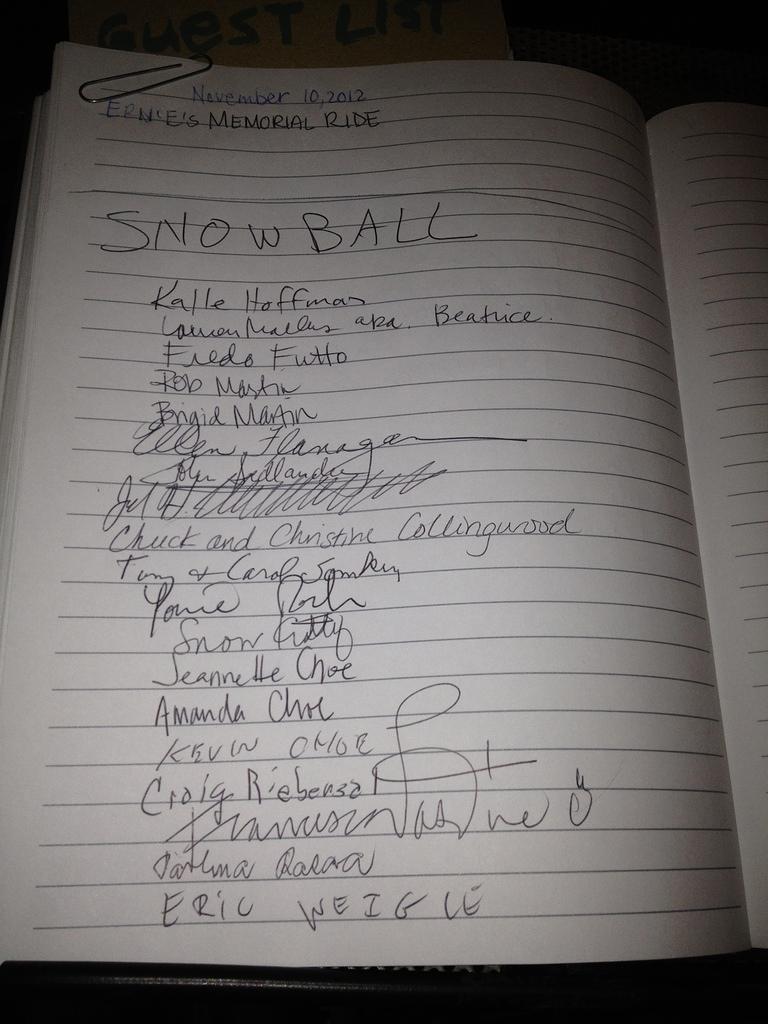 GUEST LIST
November 10, 2012
ERNIE'S MEMORIAL RIDE
SNOWBALL
Kalle Hoffman
aka. Beatrice.
Fredo Futto
Rob Martin
Brigid Martin
Ellen Flanagan
John
Chuck and Christine Collingwood
Tony & Carol
Snow Kitty
Jeannette Choe
Amanda Choe
KEVIN CHOE
Craig
ERIC WEIGLE